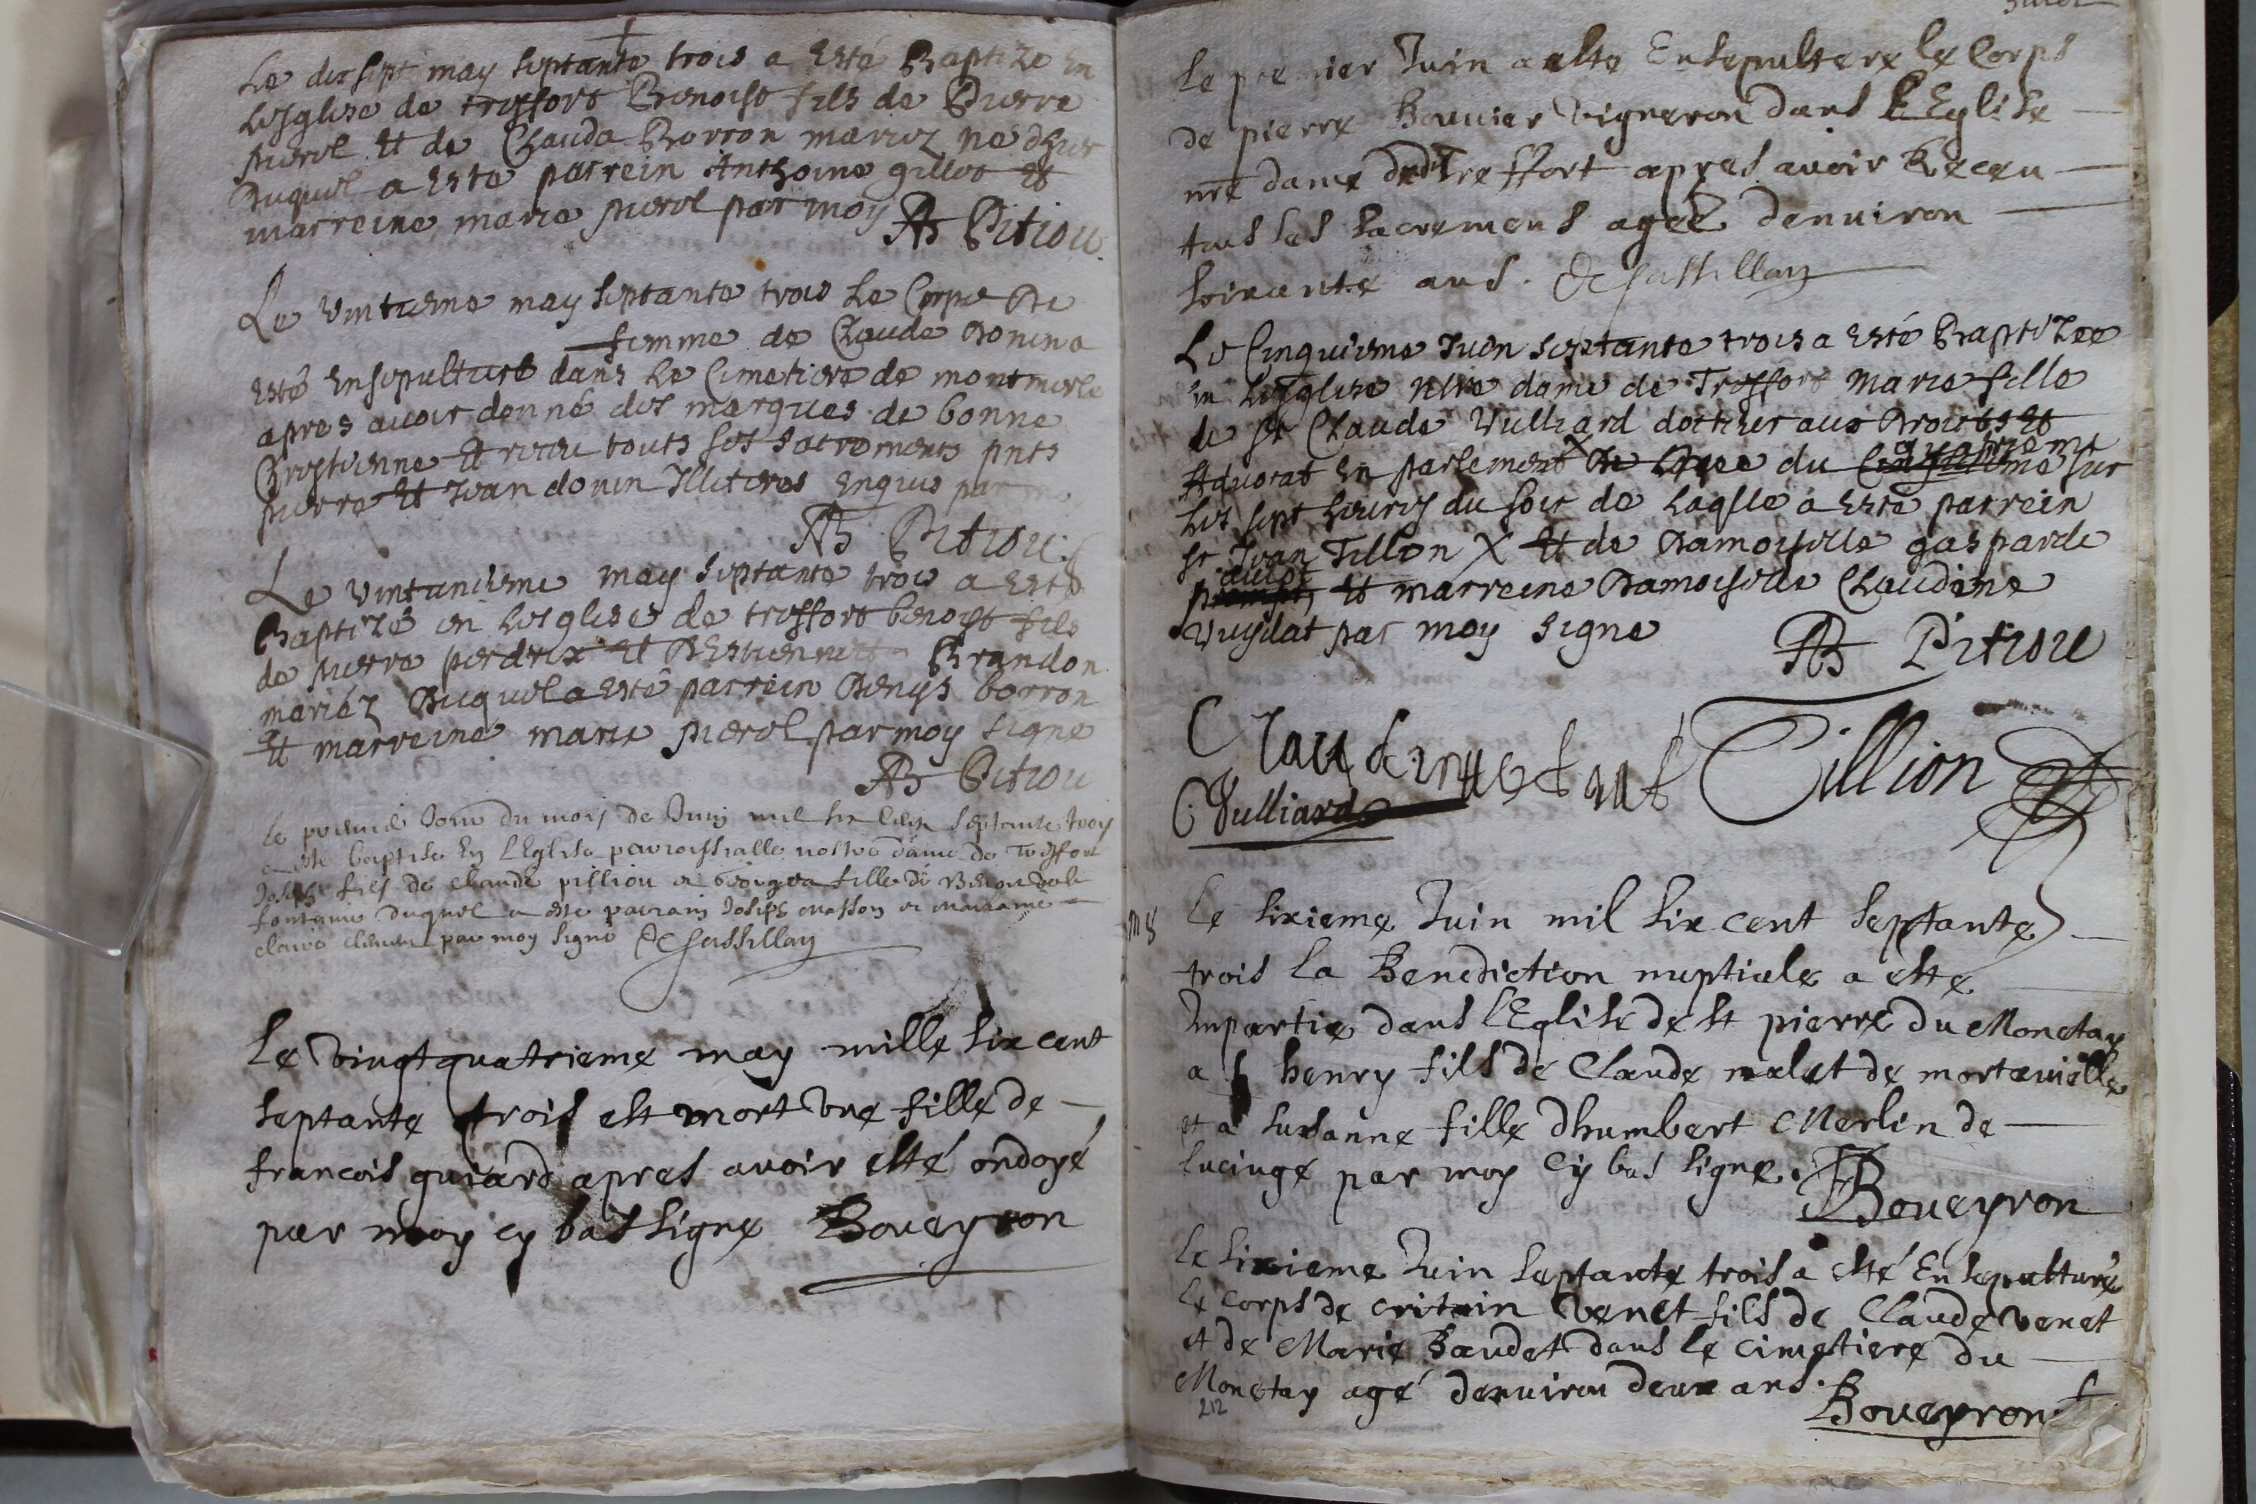 Le dix sept may septante trois a esté Baptize en
Lesglise de treffort Benoist fils de Pierre
pierol et de Clauda Borron mariez ne dhier
Duquel a este parrein Anthoine gillot et
marreine marie pierol par moy AB Pitiou
Le vintiesme may septante trois Le Corps De
femme de Claude Donin a
esté ensepulturé dans Le Cimetiere de montmerle
apres avoir donné des marques de bonne
Chrestienne et receu touts ses sacrements pnts
pierre et Jean donin Illiteres enquis par
AB Pitiou
Le vintuniesme may septante trois a esté
Baptizé en Lesglise de treffort benoist fils
de pierre perdrix et Destiennette Brandon
mariéz Duquel a esté parrein Denys borron
et marreine marie pierol par moy signe
AB Pitiou
Le premié Jour du mois de Juin mil six cens septante trois
a este baptise En LEglise parroissialle nostre dame de Treffort
Joseph fils de claude pilliou et fille de
fontaine duquel a este parrain Joseph masson et marraine
claire par moy signé
Le vingtquatrieme may mille six cent
septante trois est mort vne fille de
francois guiard apres avoir esté ondoyé
par moy cy bas signe Boueyron
Le premier Juin a este Ensepulture le Corps
de pierre Bouvier vigneron dans l'Eglise
nre dame de Treffort apres avoir Receu
tous les sacremens agée denviron
soixante ans.
Le Cinquiesme Juin septante trois a esté Baptizee
en Lesglise nre dame de Treffort Marie fille
de sr Claude Vulliard docteur aux Droicts et
Advocat en parlement X du quatrieme sur
Les sept heures du soir de Laqlle a esté parrein
sr Jean Tillion X et de Damoiselle gasparde
et marreine Damoiselle Claudine
par moy signe AB Pitiou
Tillion
C Vulliard
Le sixieme Juin mil six cent septante
trois la Benediction nuptiale a esté
Impartie dans l'Eglise de st pierre du Monetay
a henry fils de Claude malet de mortauielle
et a susanne fille dhumbert Merlin de
lucinge par moy Cy bas signe.
Boueyron
Le sixieme Juin septante trois a esté Ensepulturé
le corps de venet fils de Claude venet
et de Marie Baudet dans le cimetiere du
Monetay agé denviron deux ans.
212
Boueyron